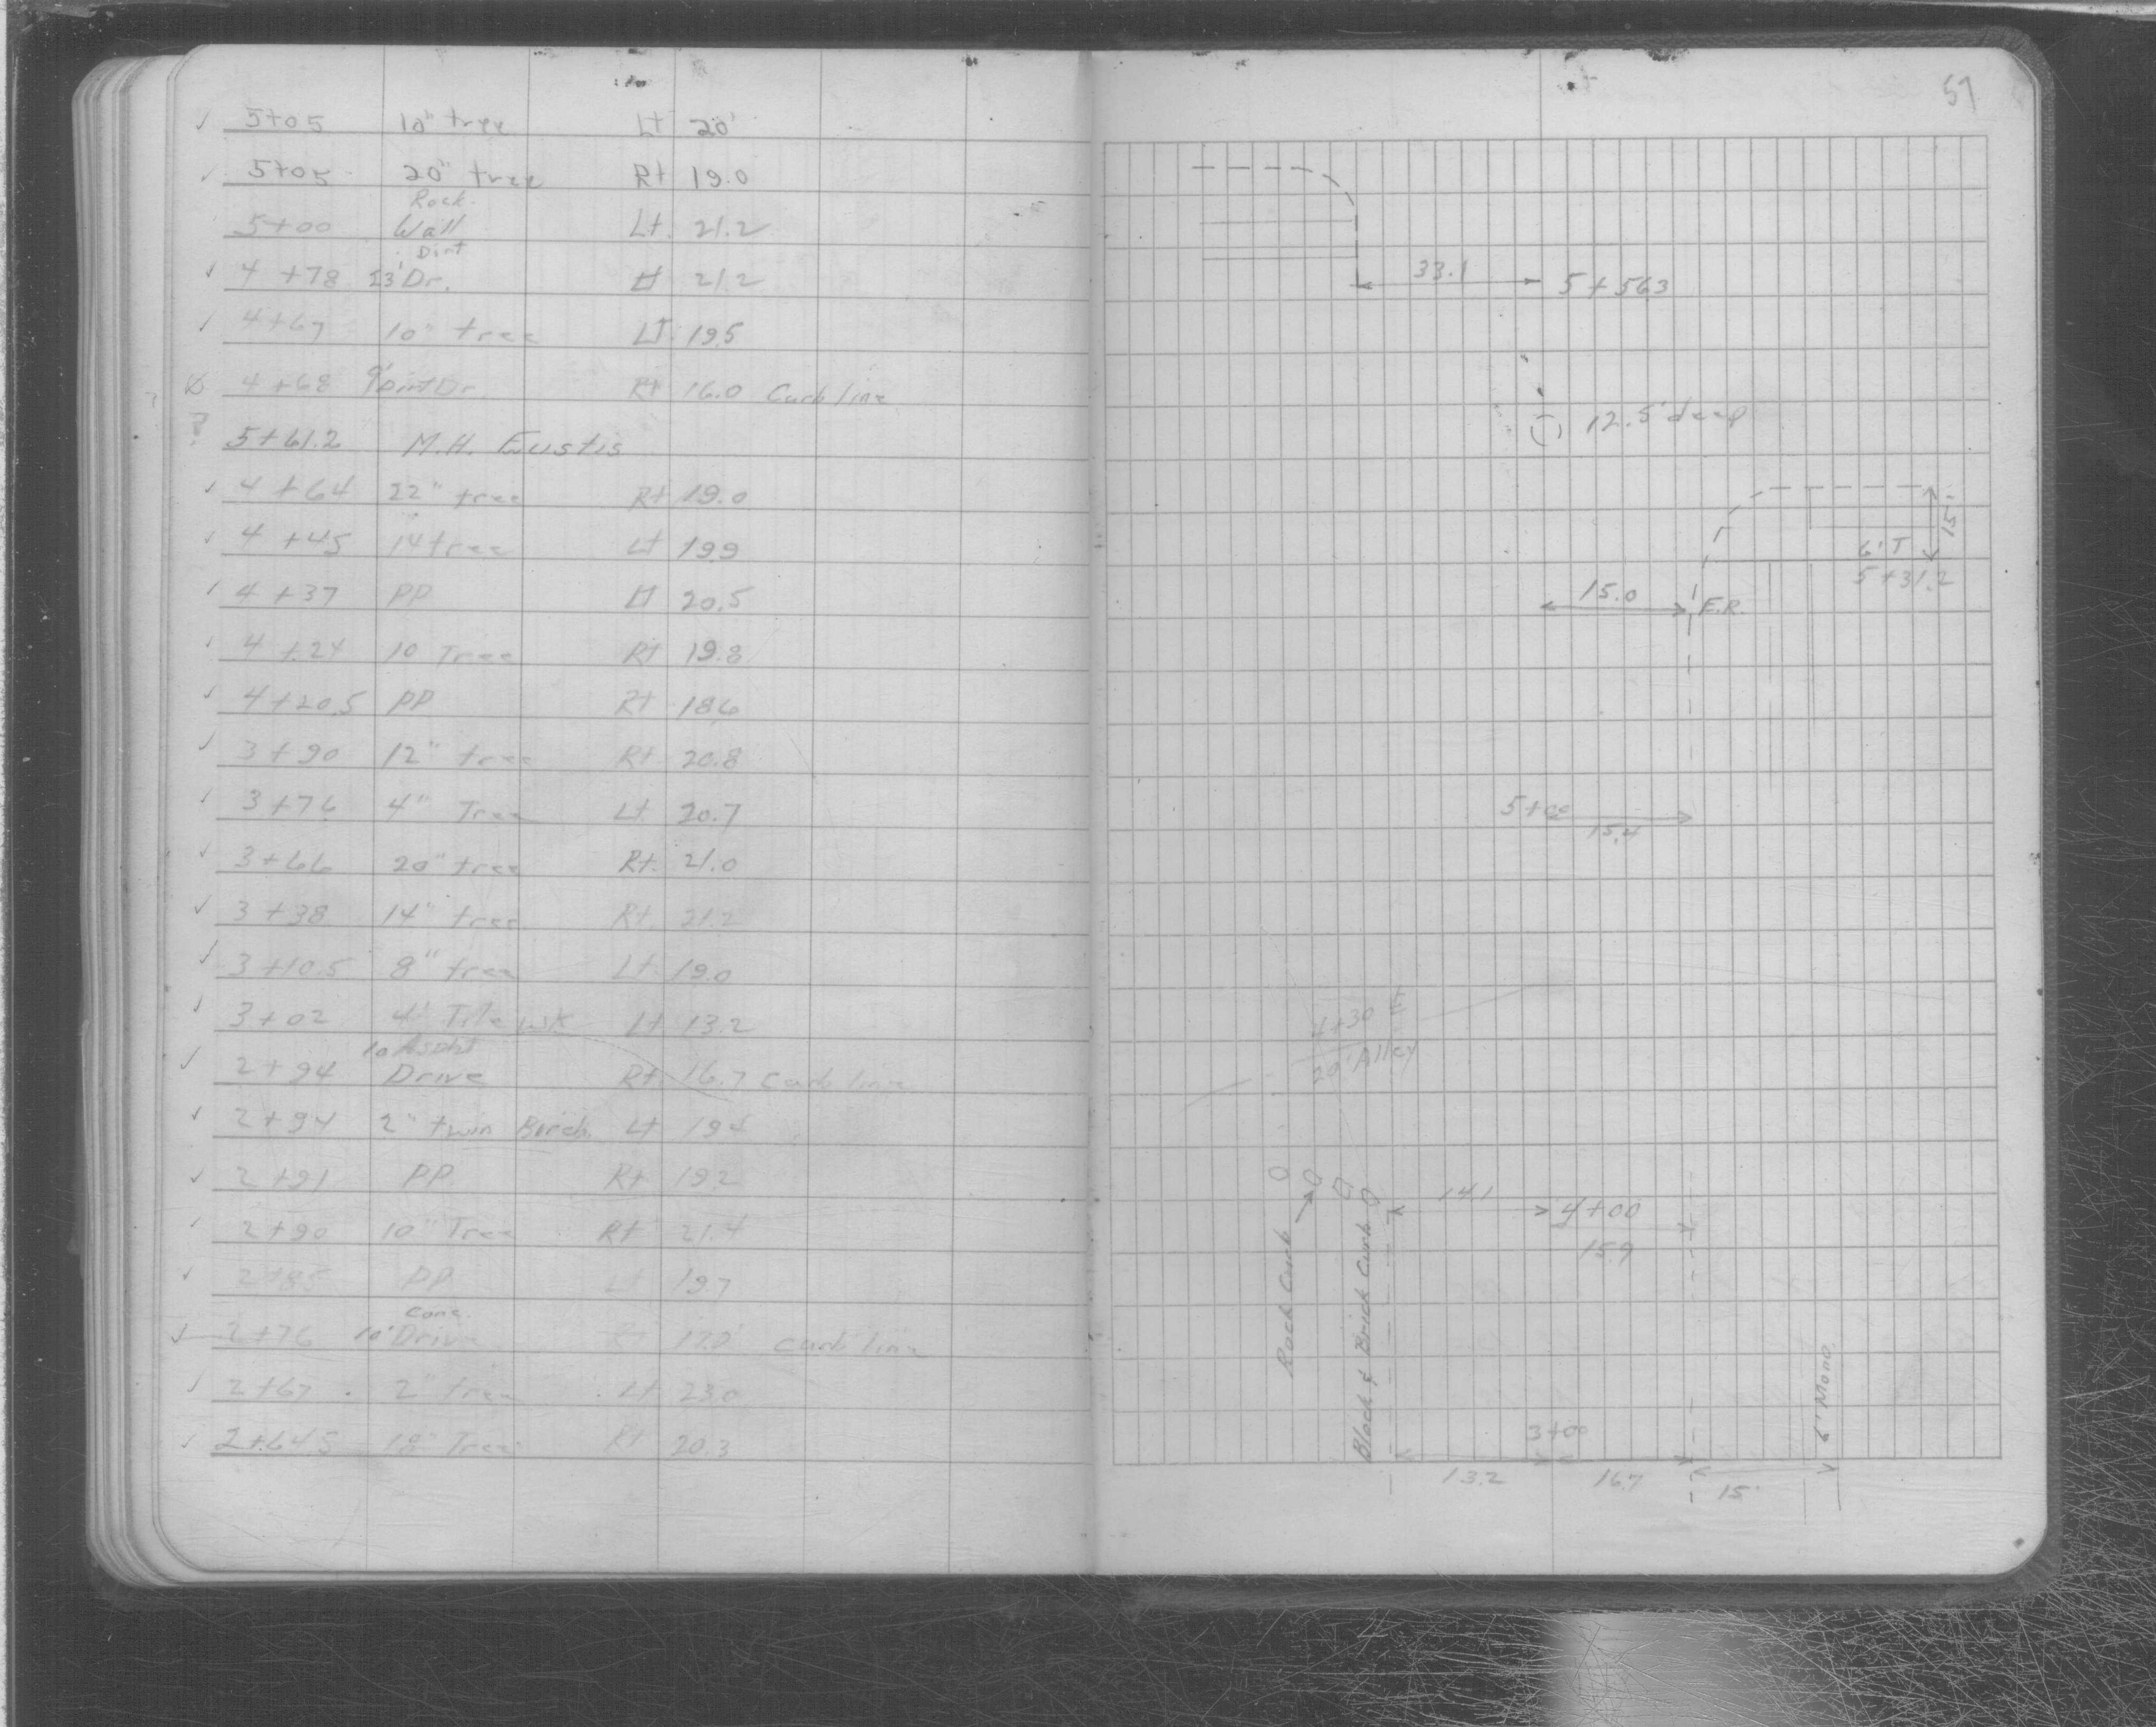 57
5+05 10" tree Lt 20'
5+05 20" tree Rt 19.0
Rock
5+00 Wall Lt. 21.2
Dirt
4+78 23' Dr. Lt 21.2
4+67 10" tree Lt 19.5
4+68 9' Dirt Dr. Rt 16.0 Curb line
5+61.2 M.H. Eustis
4+64 22" tree Rt 19.0
4+45 14 tree Lt 19.9
4+37 PP Lt 20.5
4+24 10 Tree Rt 19.8
4+20.5 PP Rt 18.6
3+90 12" tree Rt 20.8
3+76 4" Tree Lt. 20.7
3+66 20" tree Rt. 21.0
3+38 14" tree Rt. 21.2
3+10.5 8" tree Lt 19.0
3+02 4' Tile Lt 13.2
10' Asphlt
2+94 Drive Rt 16.7 Curb line
2+94 2" twin Birch. Lt
2+91 PP Rt 19.2
2+90 10" Tree Rt 21.4
2+85 PP Lt 19.7
Conc.
2+76 10' Drive Rt 17.0' curb line
2+67 2" tree Lt 23.0
2+64.5 18" Tree Rt 20.3
33.1 5+56.3
12.5' deep
15'
6' T
5+31.2
15.0 E.R.
5+00
15.4
4+30
20' Alley
14.1 4+00
15.9
Rock Curb
Block & Brick Curb
6' Mono
3+00
13.2 16.7 15'